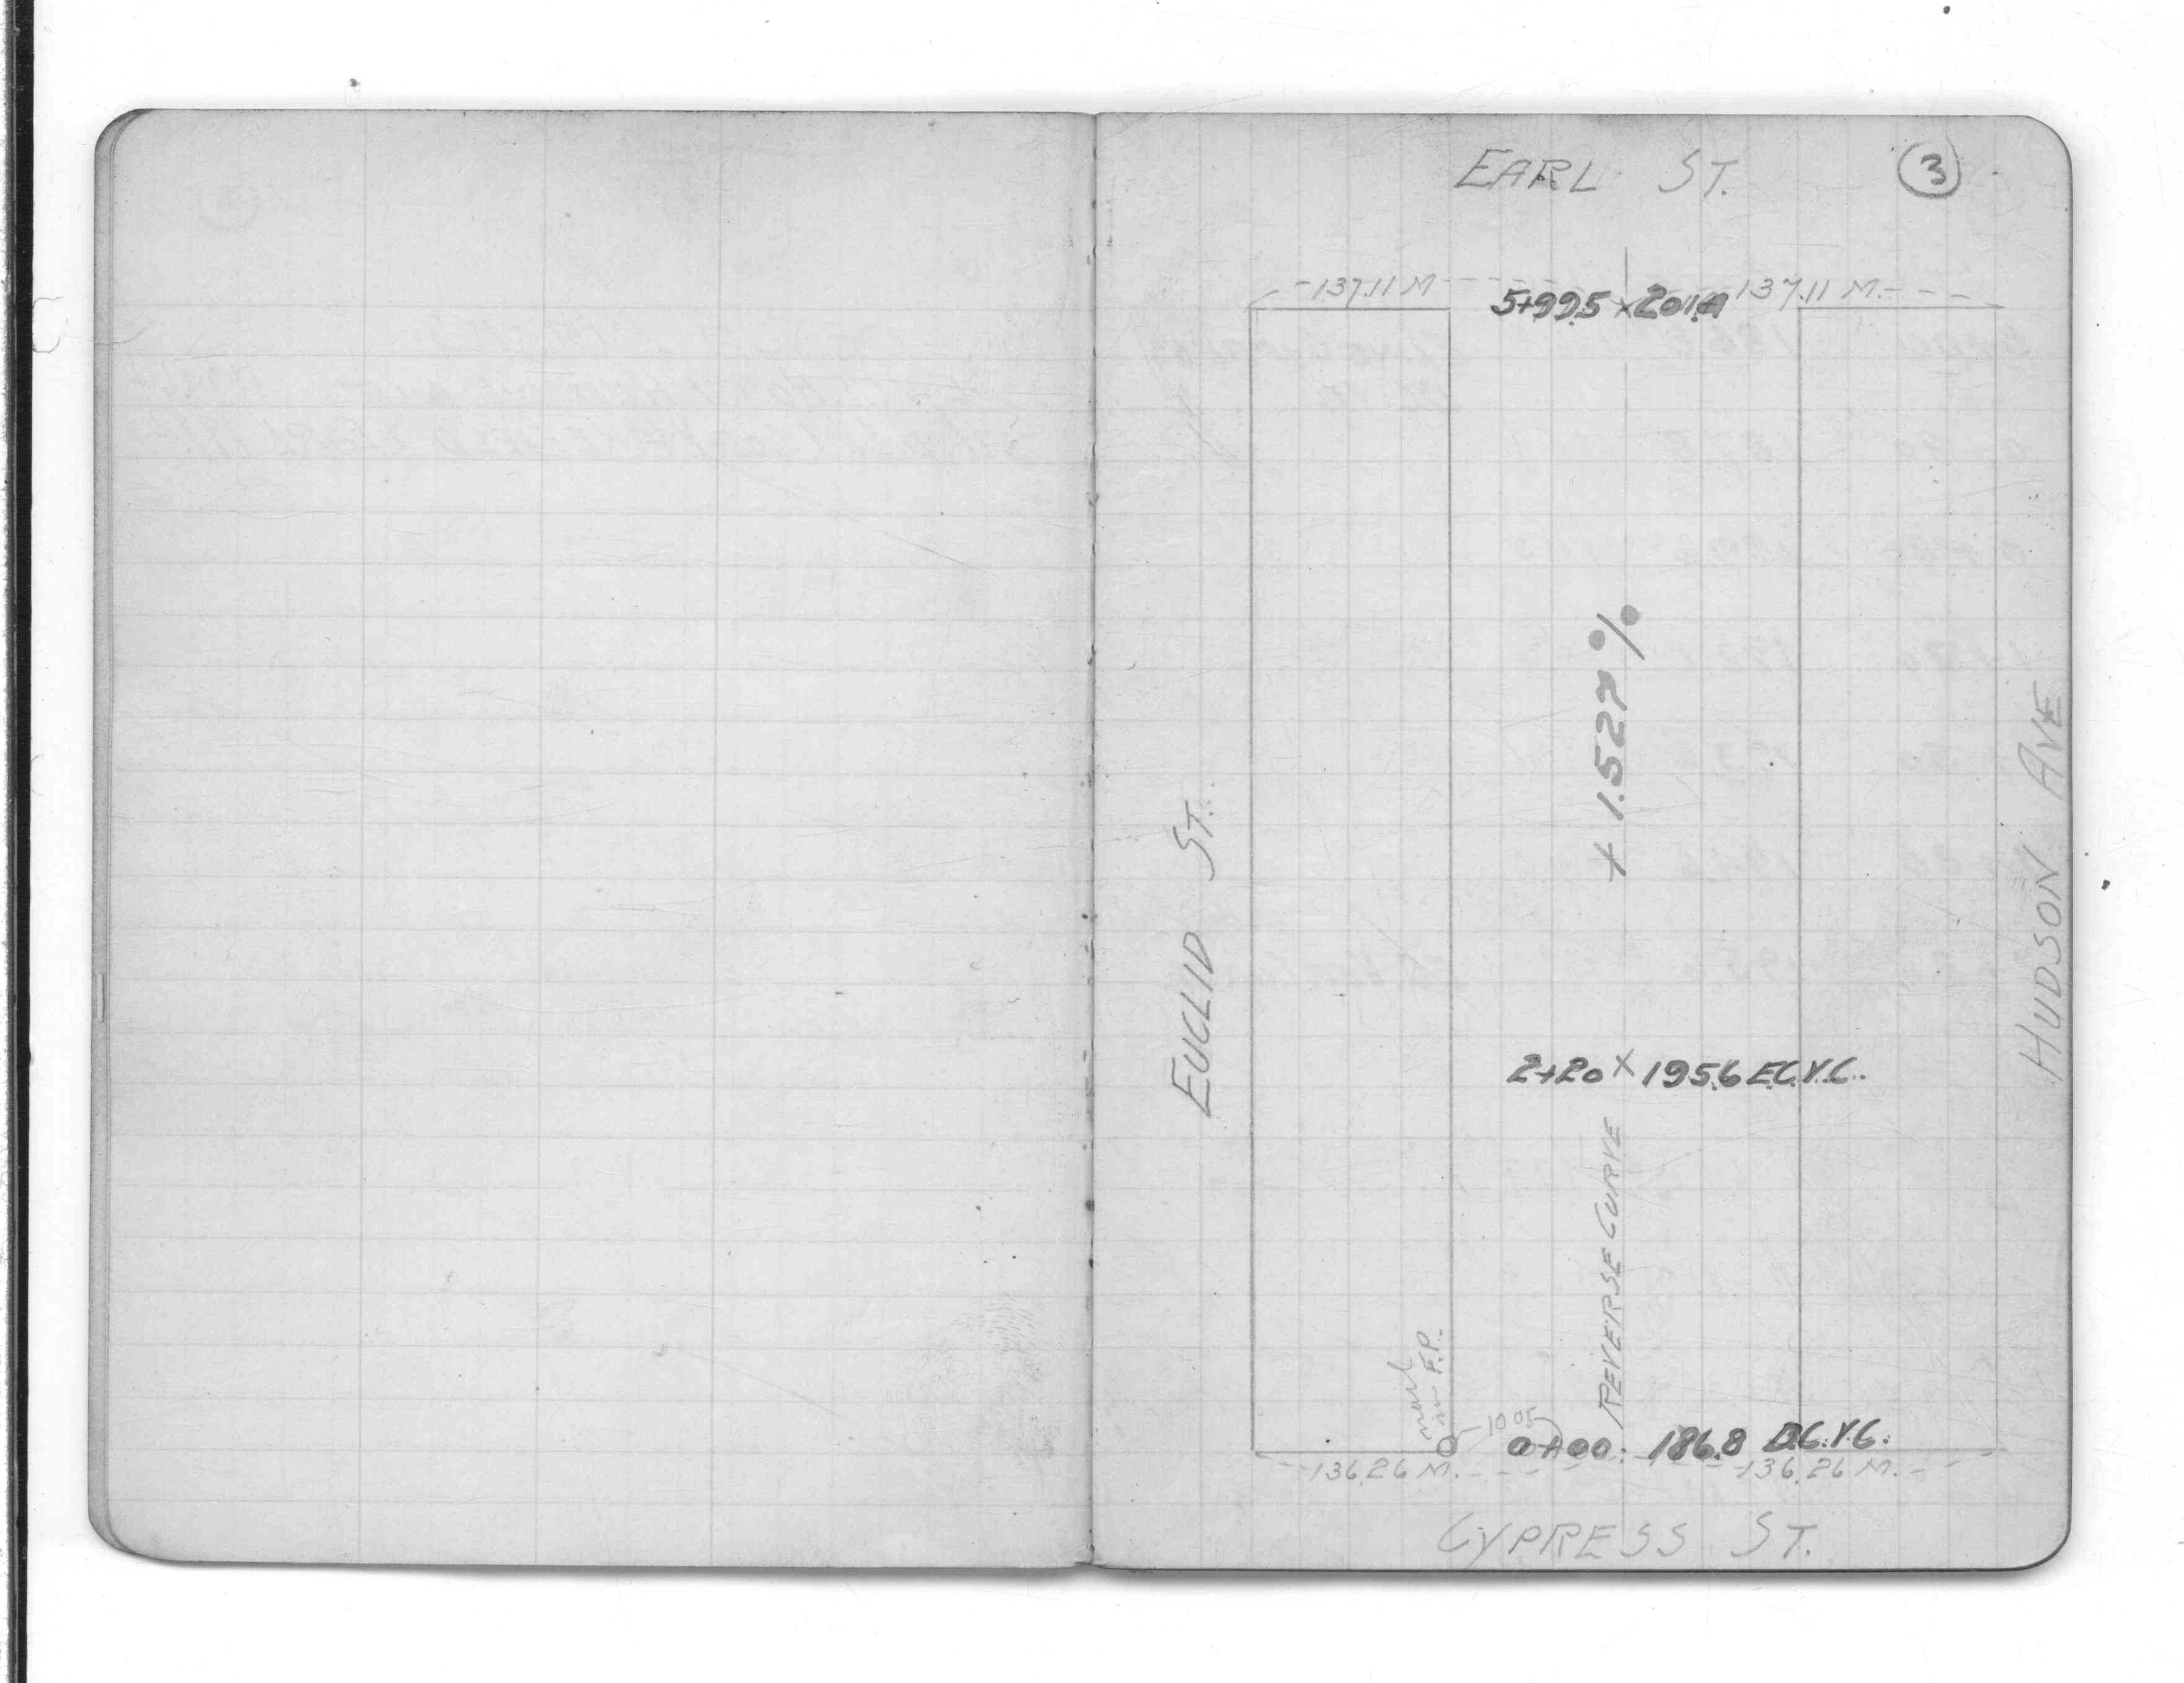 EARL ST.
3
137.11 M
5+99.5 x 201.4
137.11 M.
+ 1.527 %
HUDSON AVE
EUCLID ST.
2+20 x 195.6 E.C.V.C.
REVERSE CURVE
nail
in F.P.
10.05
0+00. 186.8 B.C.V.C.
136.26 M.
136.26 M.
CYPRESS ST.